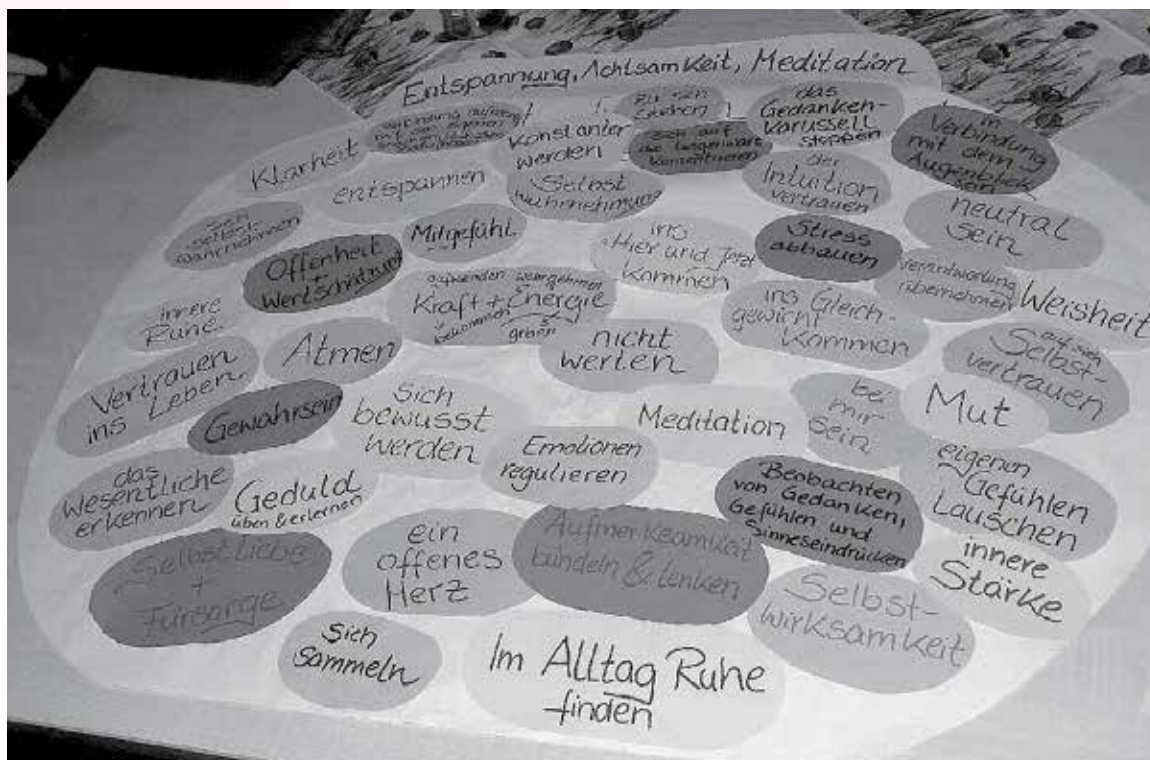 Entspannung, Achtsamkeit, Meditation
Klarheit
mit den eigenen
konstanter
werden
zu sich
sich auf
die Gegenwart
konzentrieren
das
Gedanken-
karussell
stoppen
in
Verbindung
mit dem
Augenblick
sein
entspannen
Selbst
wahrnehmung
der
Intuition
vertrauen
neutral
sein
sich
selbst-
wahrnehmen
Offenheit
+
Wertschätzung
Mitgefühl
ins
Hier und Jetzt
kommen
Stress
abbauen
Verantwortung
übernehmen
Weisheit
innere
Ruhe
wahrnehmen
Kraft + Energie
bekommen
geben
ins Gleich-
gewicht
kommen
auf sich
Selbst-
vertrauen
Vertrauen
ins Leben
Atmen
nicht
werten
Gewahrsein
Sich
bewusst
werden
Meditation
bei
mir
sein
Mut
das
Wesentliche
erkennen
Geduld
üben & erlernen
Emotionen
regulieren
Beobachten
von Gedanken,
Gefühlen und
Sinneseindrücken
eigenen
Gefühlen
Lauschen
Selbstliebe
+
Fürsorge
ein
offenes
Herz
Aufmerksamkeit
bündeln & lenken
innere
Stärke
Selbst-
wirksamkeit
Sich
sammeln
Im Alltag Ruhe
finden